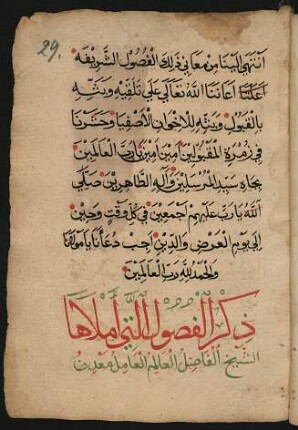 29.
انتهى الينا من معاني ذلك الفصول الشريفه
اعلينا اعاننا الله تعالى على تلقيه وبثه
بالقبول وبثه للاخوان الاصفيا وحشرنا
في زمرة المقبولين امين امين يا رب العالمين
بجاه سيد المرسلين واله الطاهرين صلى
الله يا رب عليهم اجمعين في كل وقت وحين
الى يوم العرض والدين اجب دعانا يا مولانا
والحمد لله رب العالمين
ذكر الفصول التي أملاها
الشيخ الفاضل العالم العامل معدن